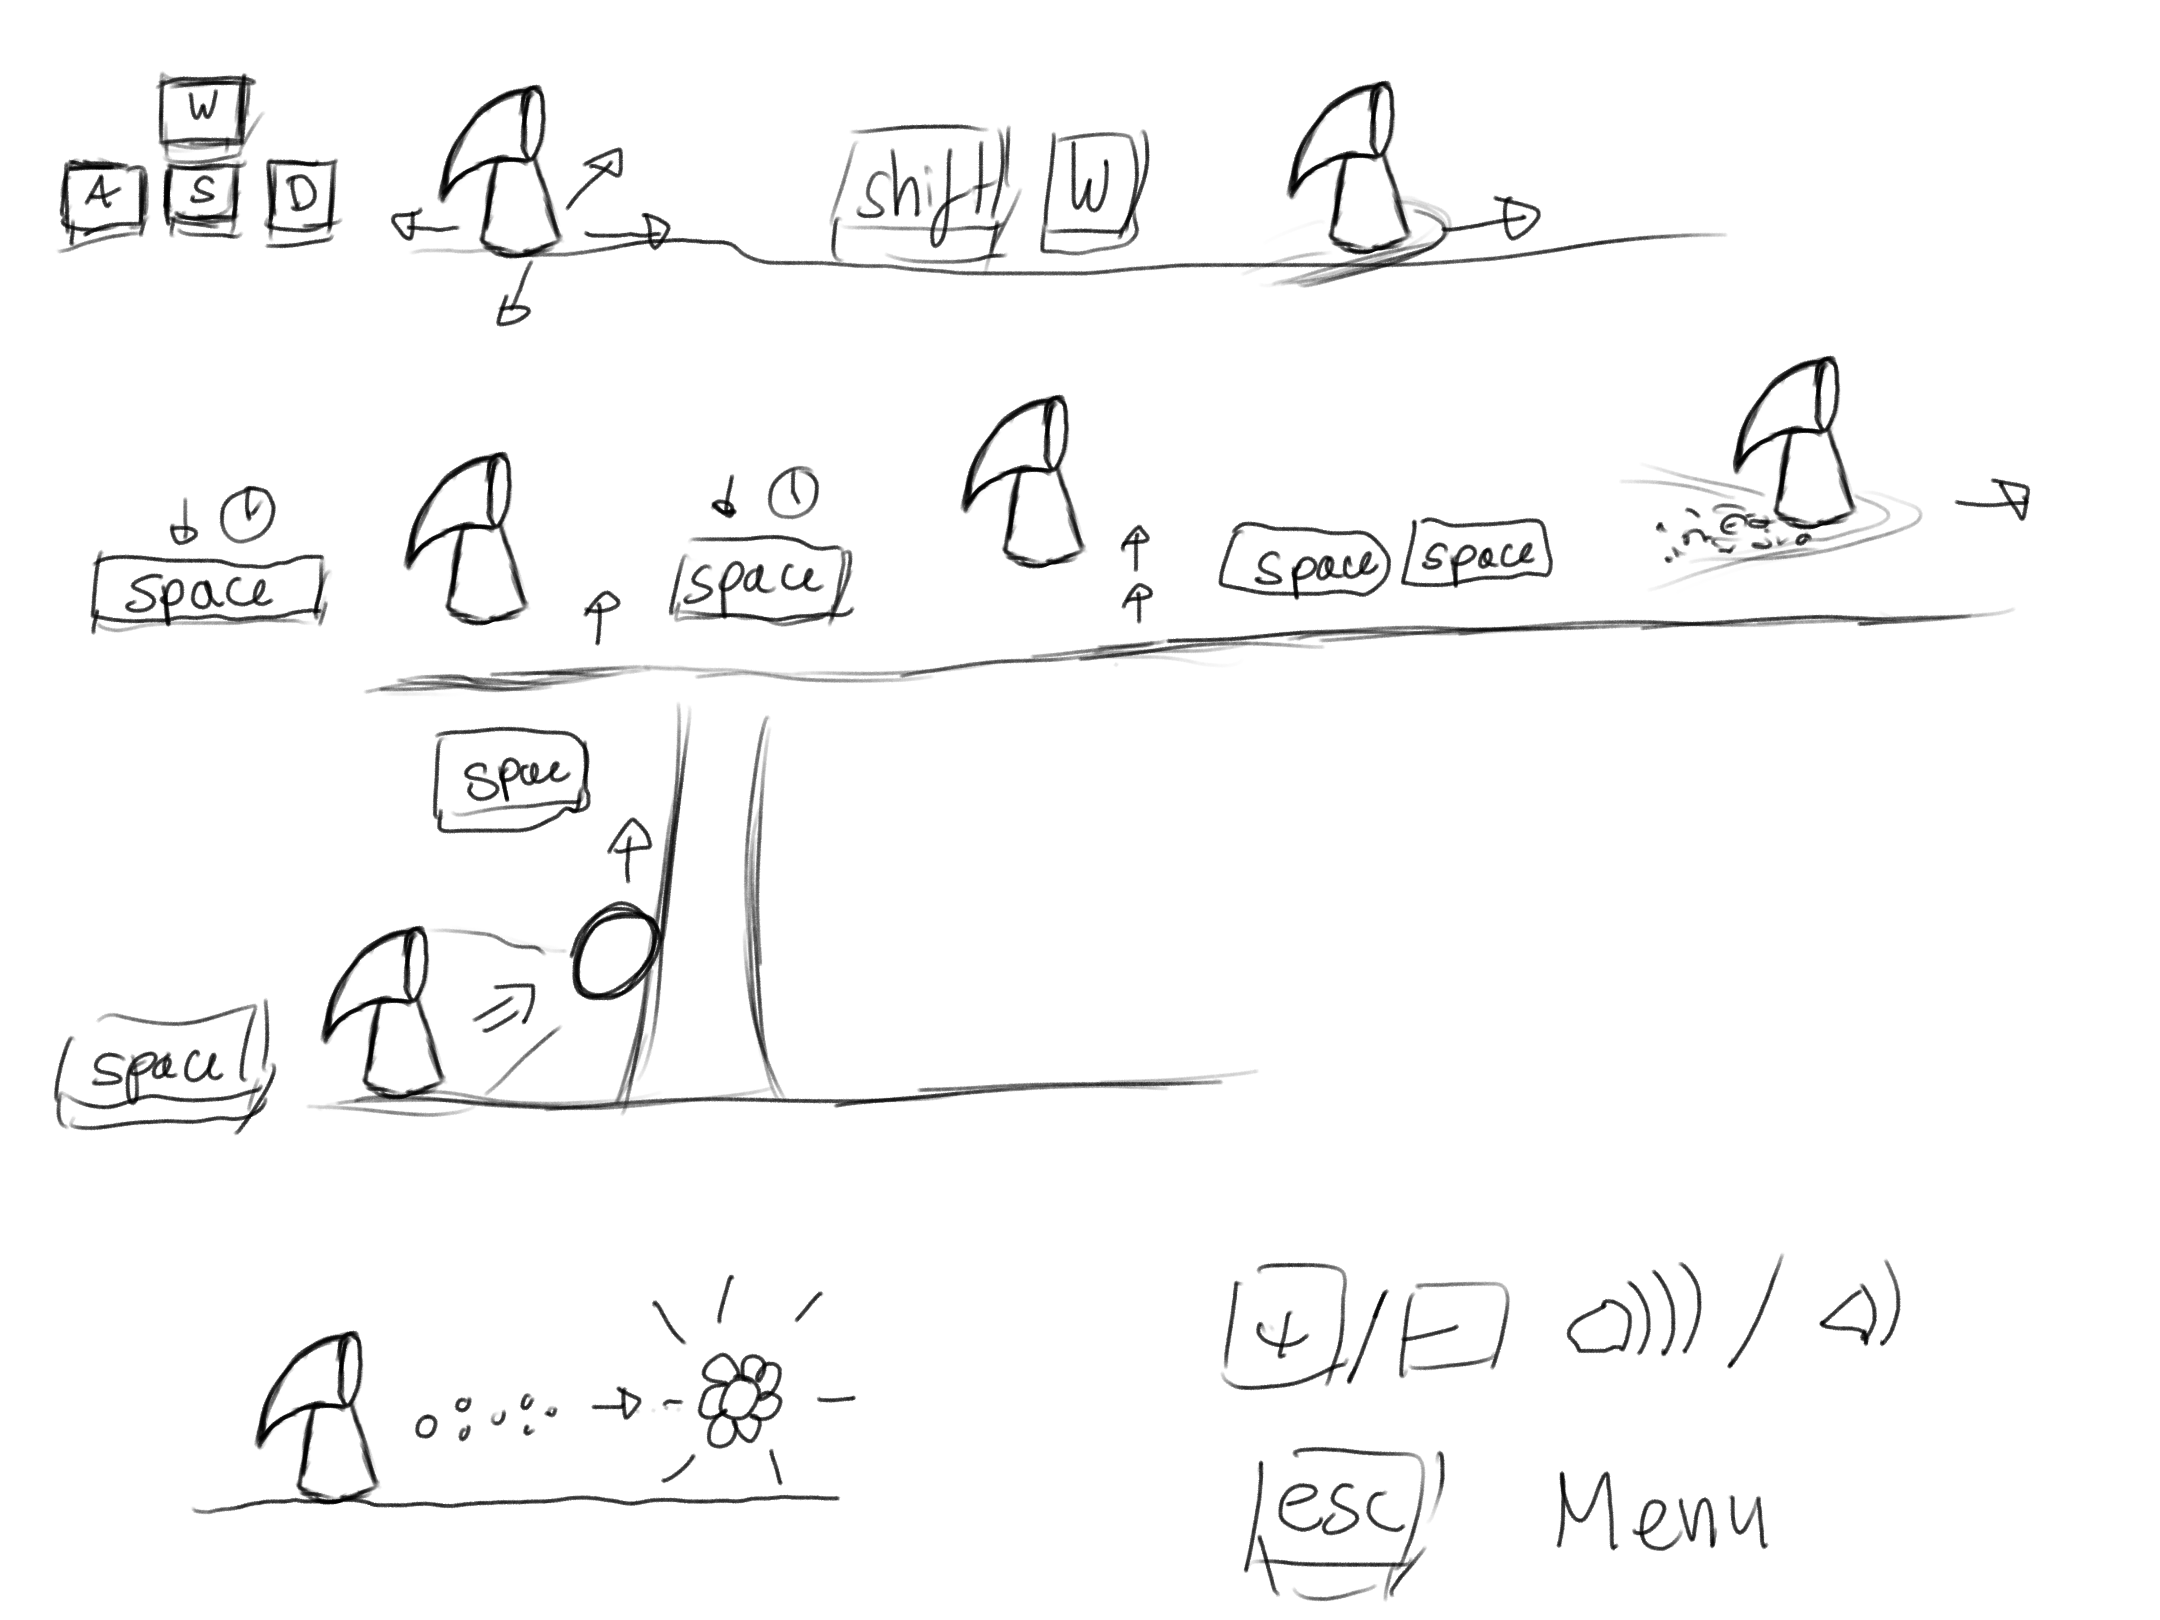 W
A S D
shift W
space space space space
space
space
+ / - /
esc Menu